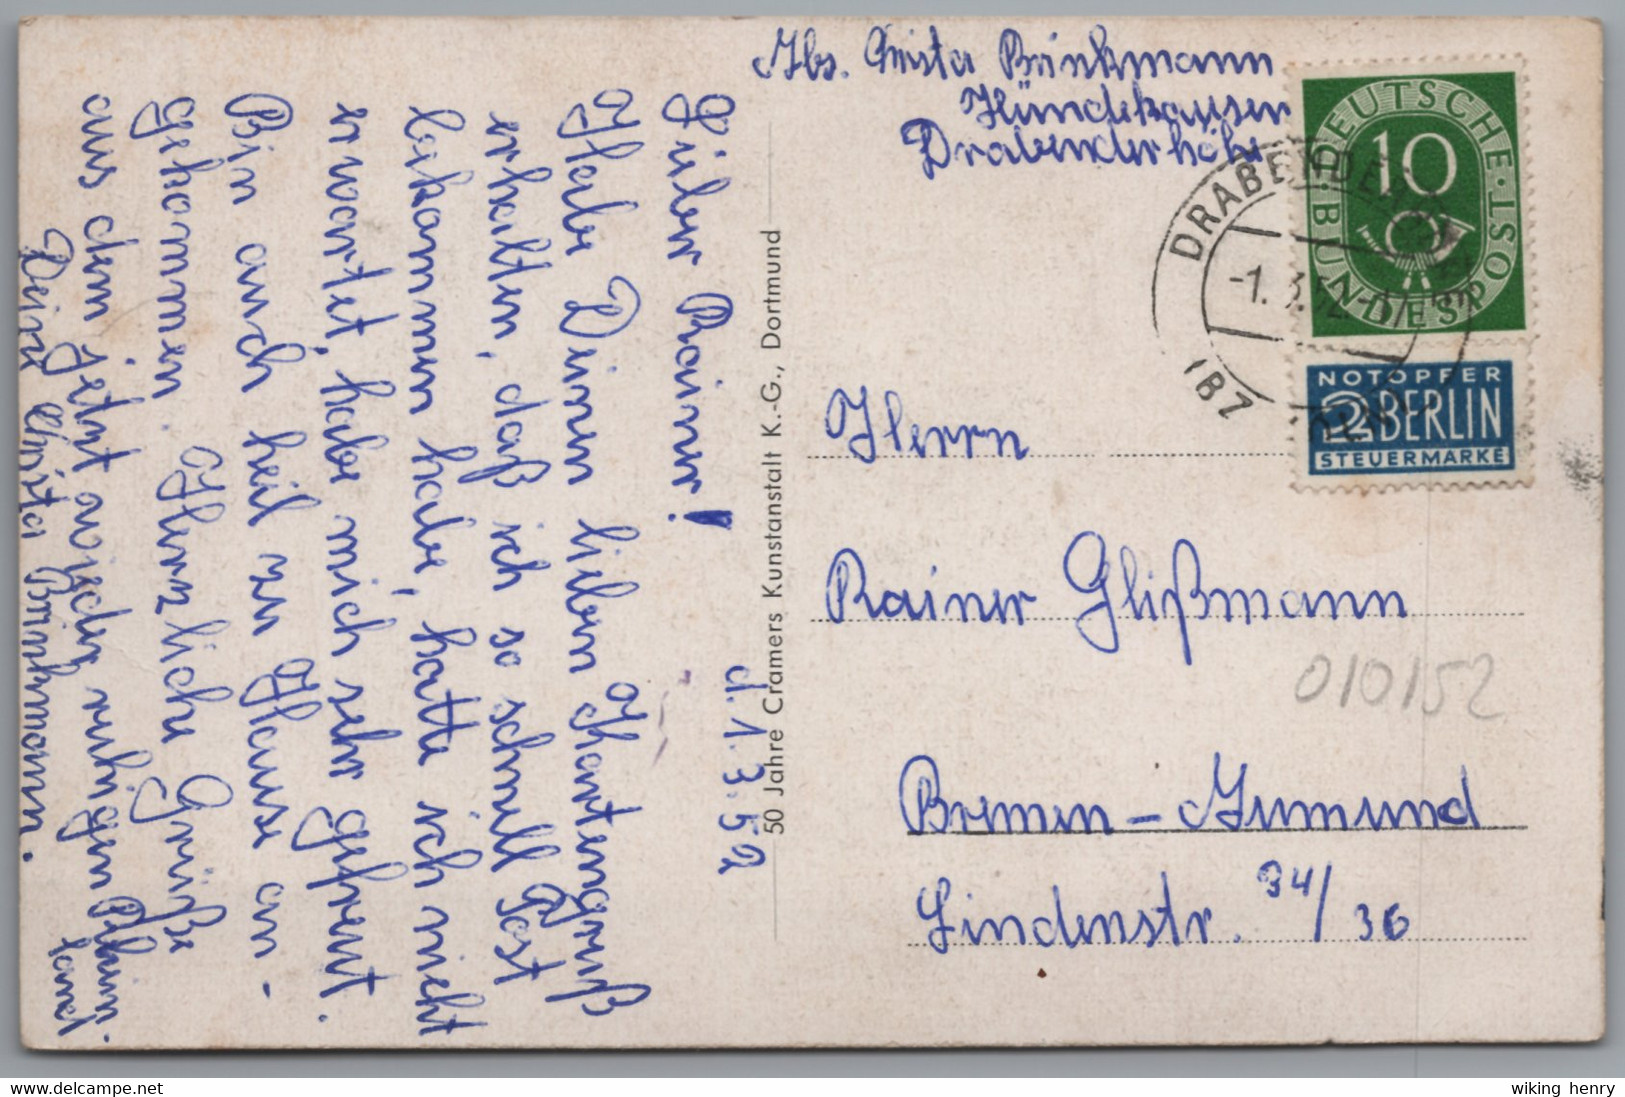 Abs. Christa Brinkmann
Hündekausen
Drabenderhöhe
DEUTSCHE BUNDESPOST
10
DRABENDERHÖHE
-1.3.52.-
NOTOPFER
2 BERLIN
STEUERMARKE
Herrn
Rainer Glißmann
010152
Bremen-Grumund
Lindenstr. 34/36
50 Jahre Cramers Kunstanstalt K.-G., Dortmund
d. 1.3.52
Lieber Rainer!
Habe Deinen lieben Kartengruß
erhalten, daß ich so schnell Post
bekommen habe, hatte ich nicht
erwartet, habe mich sehr gefreut.
Bin auch heil zu Hause an-
gekommen. Herzliche Grüße
aus dem jetzt wieder ruhigen Rhein-
land
Deine Christa Brinkmann.
wiking henry
delcampe.net